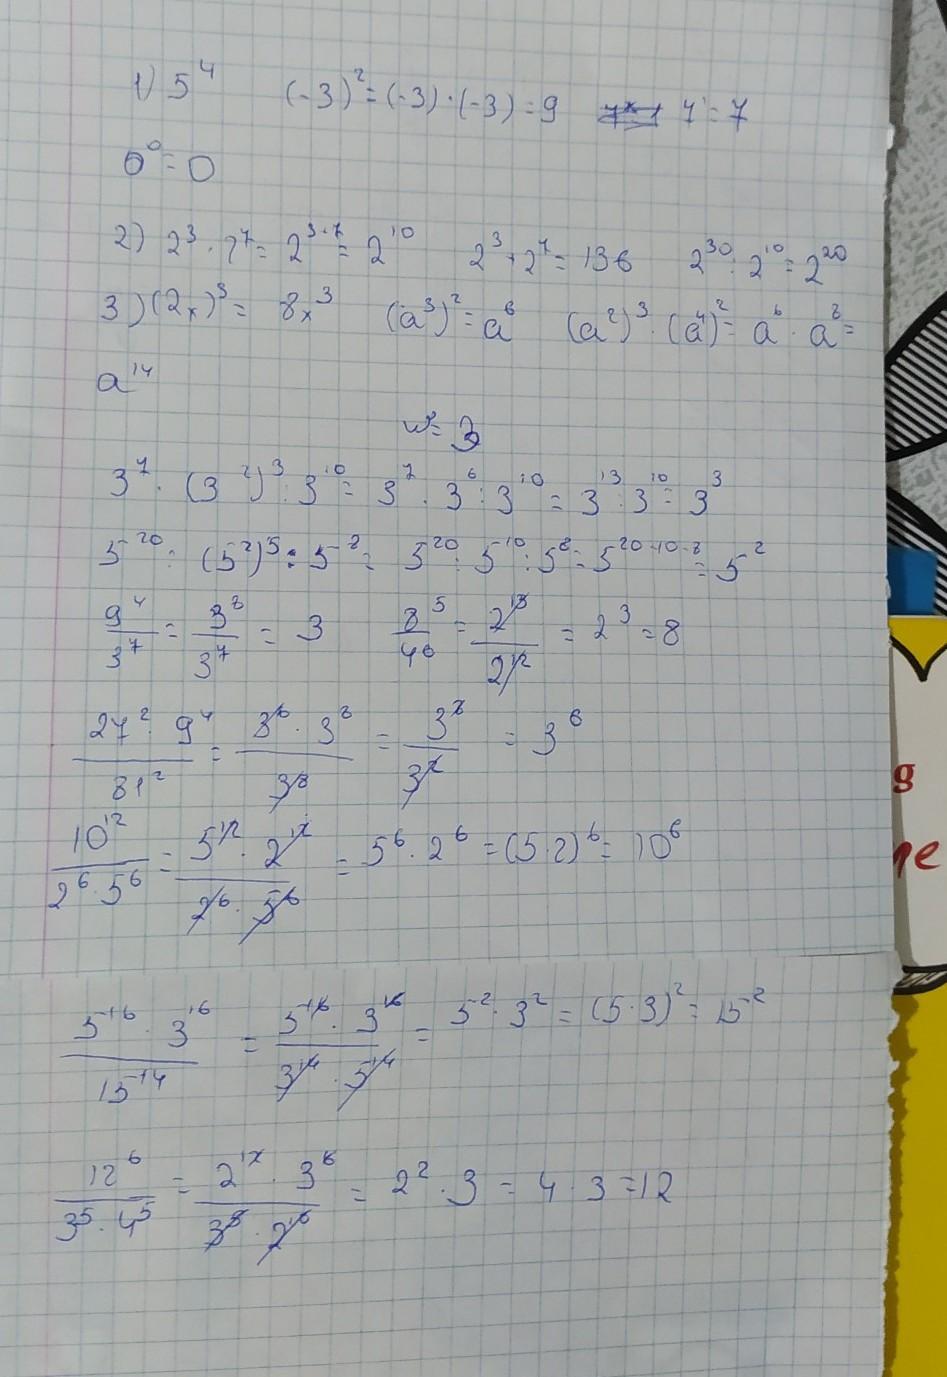 1) 5⁴ (-3)² = (-3)·(-3) = 9 7¹ = 7
0⁰ = 0
2) 2³ · 2⁷ = 2³⁺⁷ = 2¹⁰ 2³ + 2⁷ = 136 2³⁰ : 2¹⁰ = 2²⁰
3) (2x)³ = 8x³ (a³)² = a⁶ (a²)³ · (a⁴)² = a⁶ · a⁸ =
a¹⁴
3⁷ · (3²)³ : 3¹⁰ = 3⁷ · 3⁶ : 3¹⁰ = 3¹³ : 3¹⁰ = 3³
5²⁰ : (5²)⁵ : 5⁸ = 5²⁰ : 5¹⁰ : 5⁸ = 5²⁰⁻¹⁰⁻⁸ = 5²
9⁴/3⁷ = 3⁸/3⁷ = 3 8⁵/4⁶ = 2¹⁵/2¹² = 2³ = 8
27² · 9⁴/81² = 3⁶ · 3⁸/3⁸ = = 3⁶
10¹²/2⁶·5⁶ = 5¹² · 2¹²/2⁶ · 5⁶ = 5⁶ · 2⁶ = (5·2)⁶ = 10⁶
5¹⁶ · 3¹⁶/15¹⁴ = 5¹⁶ · 3¹⁶/3¹⁴ · 5¹⁴ = 5² · 3² = (5·3)² = 15²
12⁶/3⁵ · 4⁵ = 2¹² · 3⁶/3⁵ · 2¹⁰ = 2² · 3 = 4 · 3 = 12
ng
me